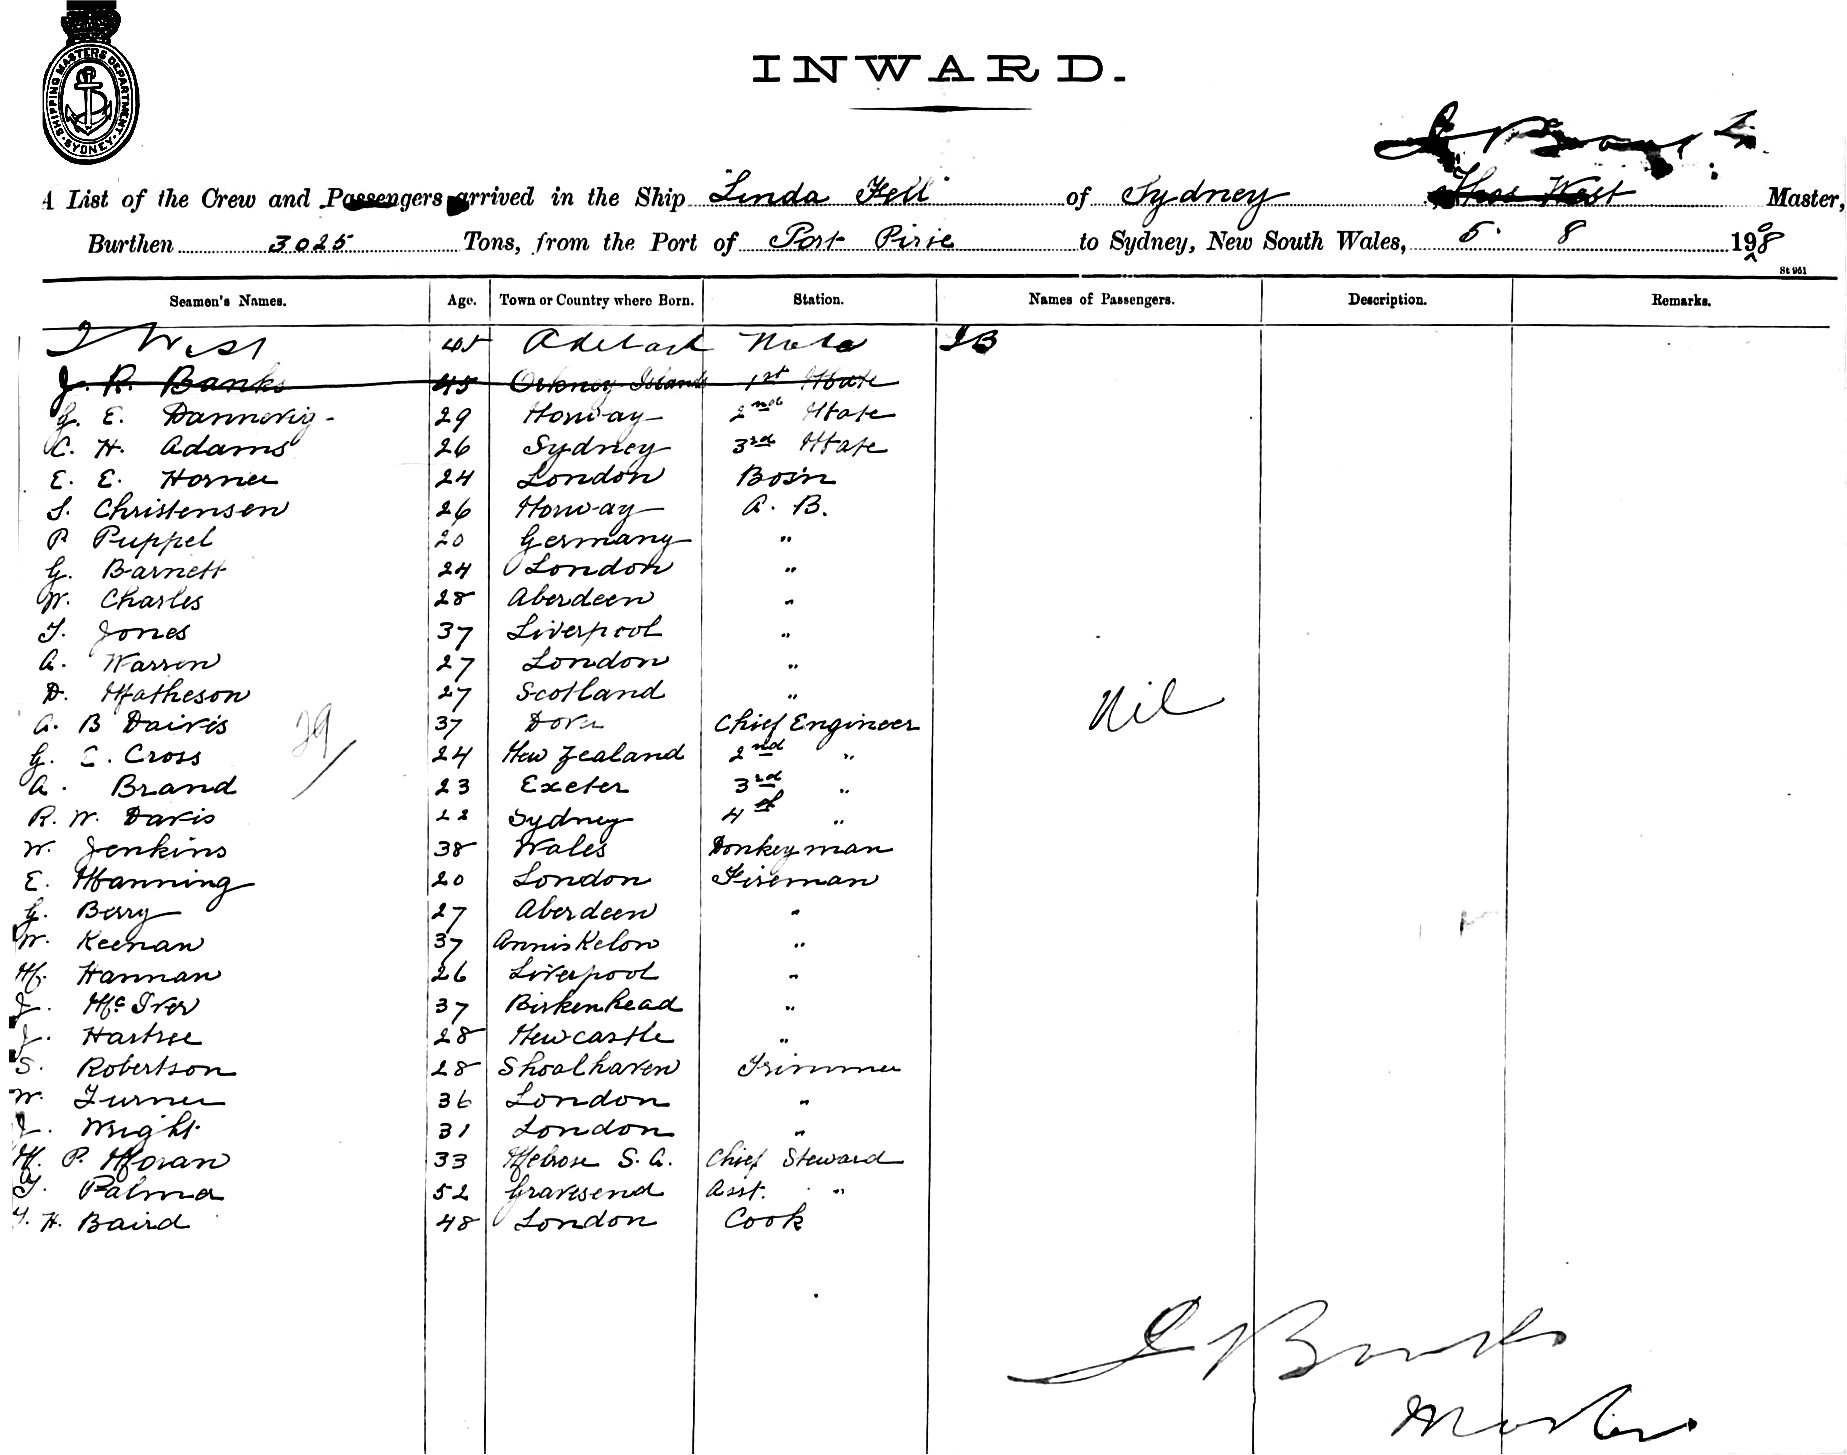 SHIPPING MASTERS DEPARTMENT
SYDNEY
INWARD.
J R Banks
A List of the Crew and Passengers arrived in the Ship "Linda Fell" of Sydney Thos West Master,
Burthen 3025 Tons, from the Port of Port Pirie to Sydney, New South Wales, 5. 8 1908
St 951
Seamen's Names. Age. Town or Country where Born. Station. Names of Passengers. Description. Remarks.
T West 45 Adelaide Mate JB
J. R. Banks 45 Orkney Islands 1st Mate
G. E. Dannevig 29 Norway 2nd Mate
C. H. Adams 26 Sydney 3rd Mate
E. E. Horner 24 London Bosn
S. Christensen 26 Norway A. B.
P Puppel 20 Germany "
G. Barnett 24 London "
W. Charles 28 Aberdeen "
T. Jones 37 Liverpool "
A. Warren 27 London "
D. Matheson 27 Scotland "
Nil
A. B Daivis 37 Dover Chief Engineer
29
G. E. Cross 24 New Zealand 2nd "
A. Brand 23 Exeter 3rd "
R. W. Davis 22 Sydney 4th "
W. Jenkins 38 Wales Donkeyman
E. Manning 20 London Fireman
G. Berry 27 Aberdeen "
W. Keenan 37 Anniskelon "
M. Hannan 26 Liverpool "
J. McIver 37 Birkenhead "
J. Hartree 28 Newcastle "
S. Robertson 28 Shoalhaven Trimmer
W. Turner 36 London "
J. Wright 31 London "
M. P. Moran 33 Melrose S. A. Chief Steward
T. Palmer 52 Gravesend Asst. "
T. H. Baird 48 London Cook
J R Banks
Master